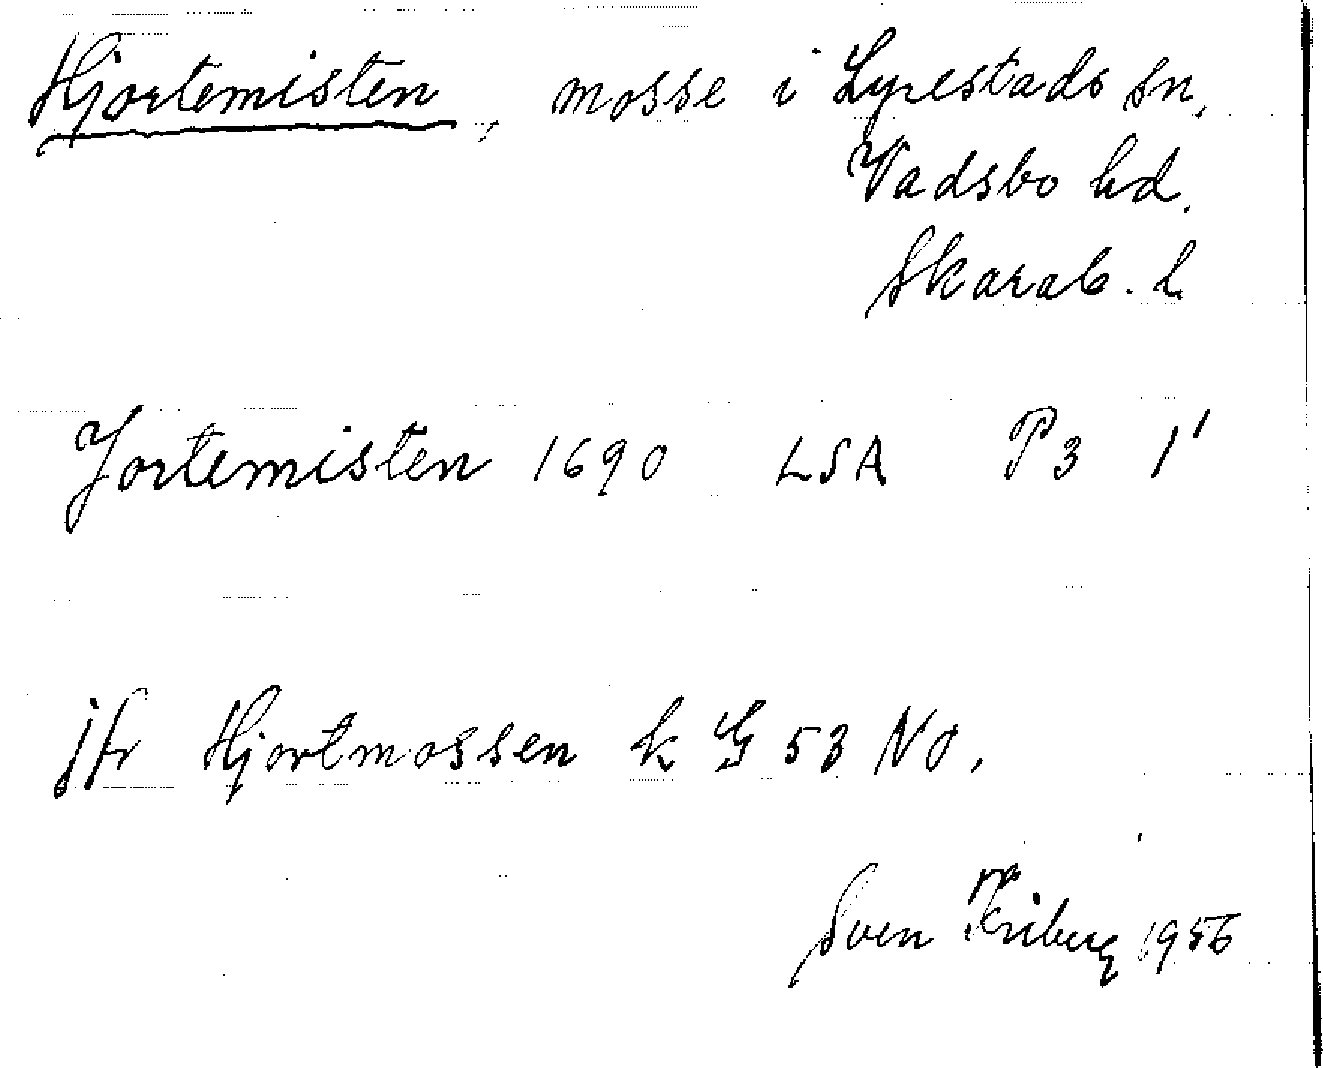 Hjortemisten, mosse i Lyrestads sn,
Vadsbo hd.
Skarab. l.
Jortemisten 1690 LSA P3 1'
jfr Hjortmossen k G 53 NO.
Sven Friberg 1956